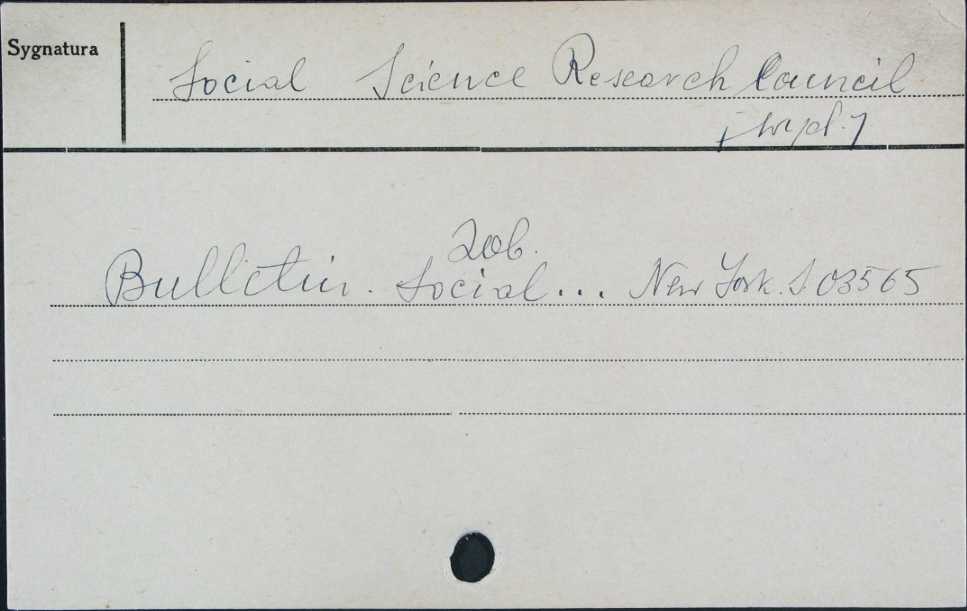 Sygnatura
Social Science Research Council
zob.
Bulletin. Social... New York. S 03565